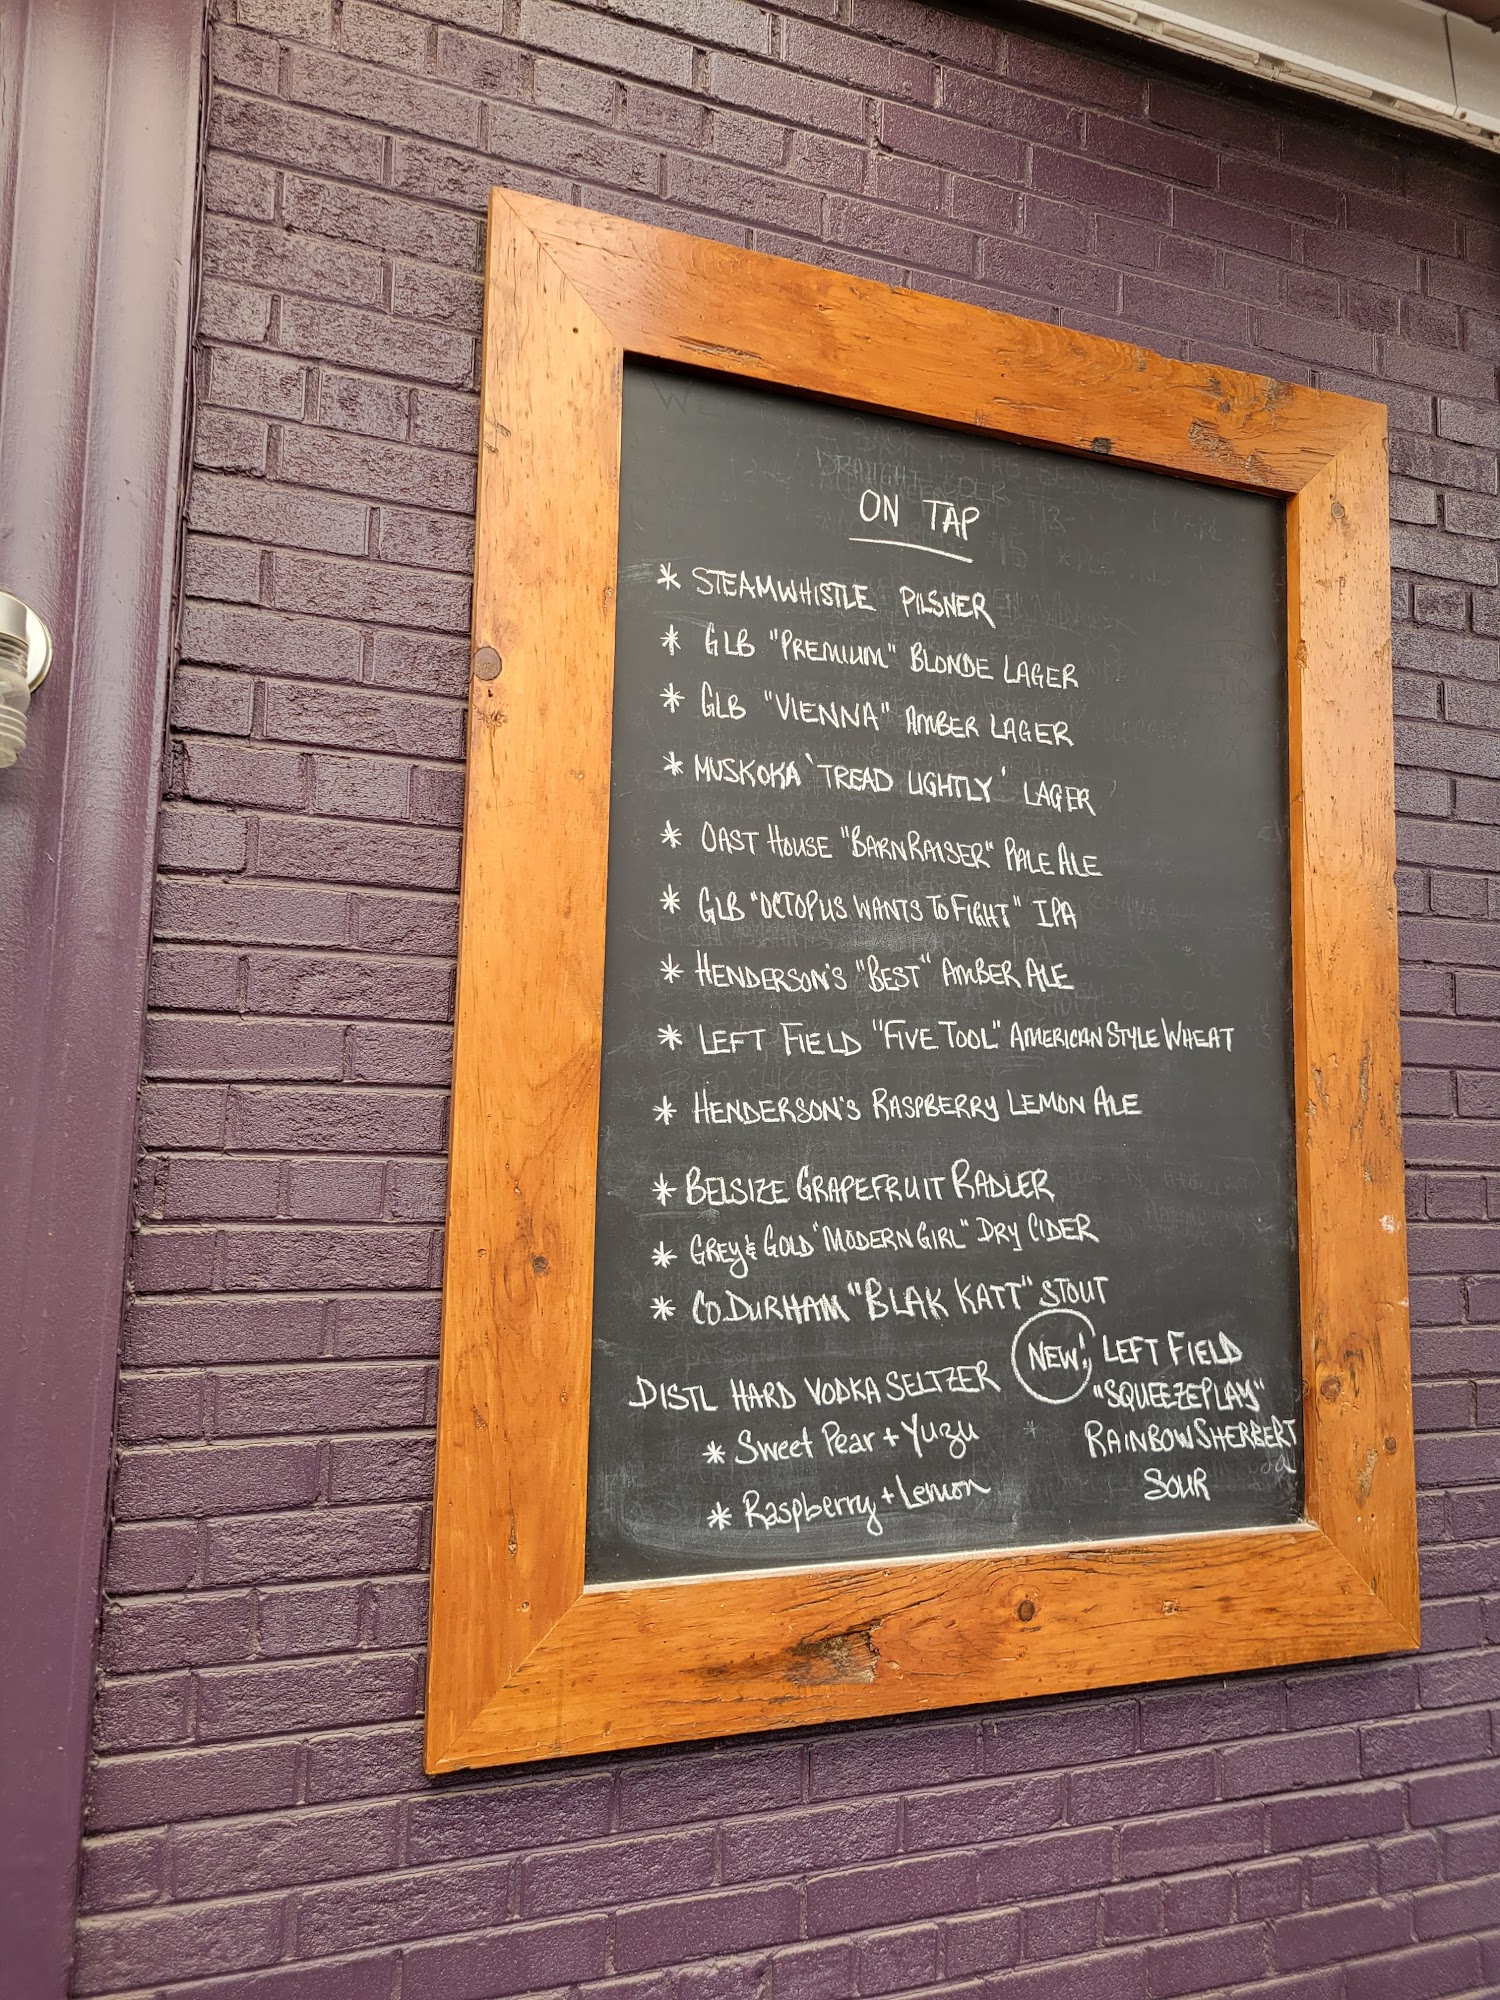 ON TAP
* STEAMWHISTLE PILSNER
* GLB "PREMIUM" BLONDE LAGER
* GLB "VIENNA" AMBER LAGER
* MUSKOKA 'TREAD LIGHTLY' LAGER
* OAST HOUSE "BARNRAISER" PALE ALE
* GLB "OCTOPUS WANTS TO FIGHT" IPA
* HENDERSON'S "BEST" AMBER ALE
* LEFT FIELD "FIVE TOOL" AMERICAN STYLE WHEAT
* HENDERSON'S RASPBERRY LEMON ALE
* BELSIZE GRAPEFRUIT RADLER
* GREY & GOLD "MODERN GIRL" DRY CIDER
* CO. DURHAM "BLAK KATT" STOUT
DISTL HARD VODKA SELTZER
* Sweet Pear + Yuzu
* Raspberry + Lemon
NEW! LEFT FIELD
"SQUEEZEPLAY"
RAINBOW SHERBERT
SOUR